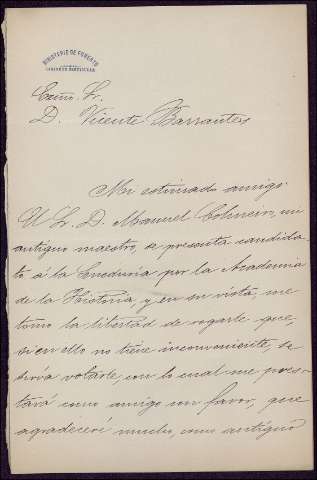 MINISTERIO DE FOMENTO
GABINETE PARTICULAR
Excmo. Sr.
D. Vicente Barrantes
Mi estimado amigo:
El Sr. D. Manuel Colmeiro, mi
antiguo maestro, se presenta candida-
to á la Senaduría por la Academia
de la Historia, y en su vista, me
tomo la libertad de rogarle que,
si en ello no tiene inconveniente, se
sirva votarle, con lo cual me pres-
tará como amigo un favor, que
agradeceré mucho, como antiguo